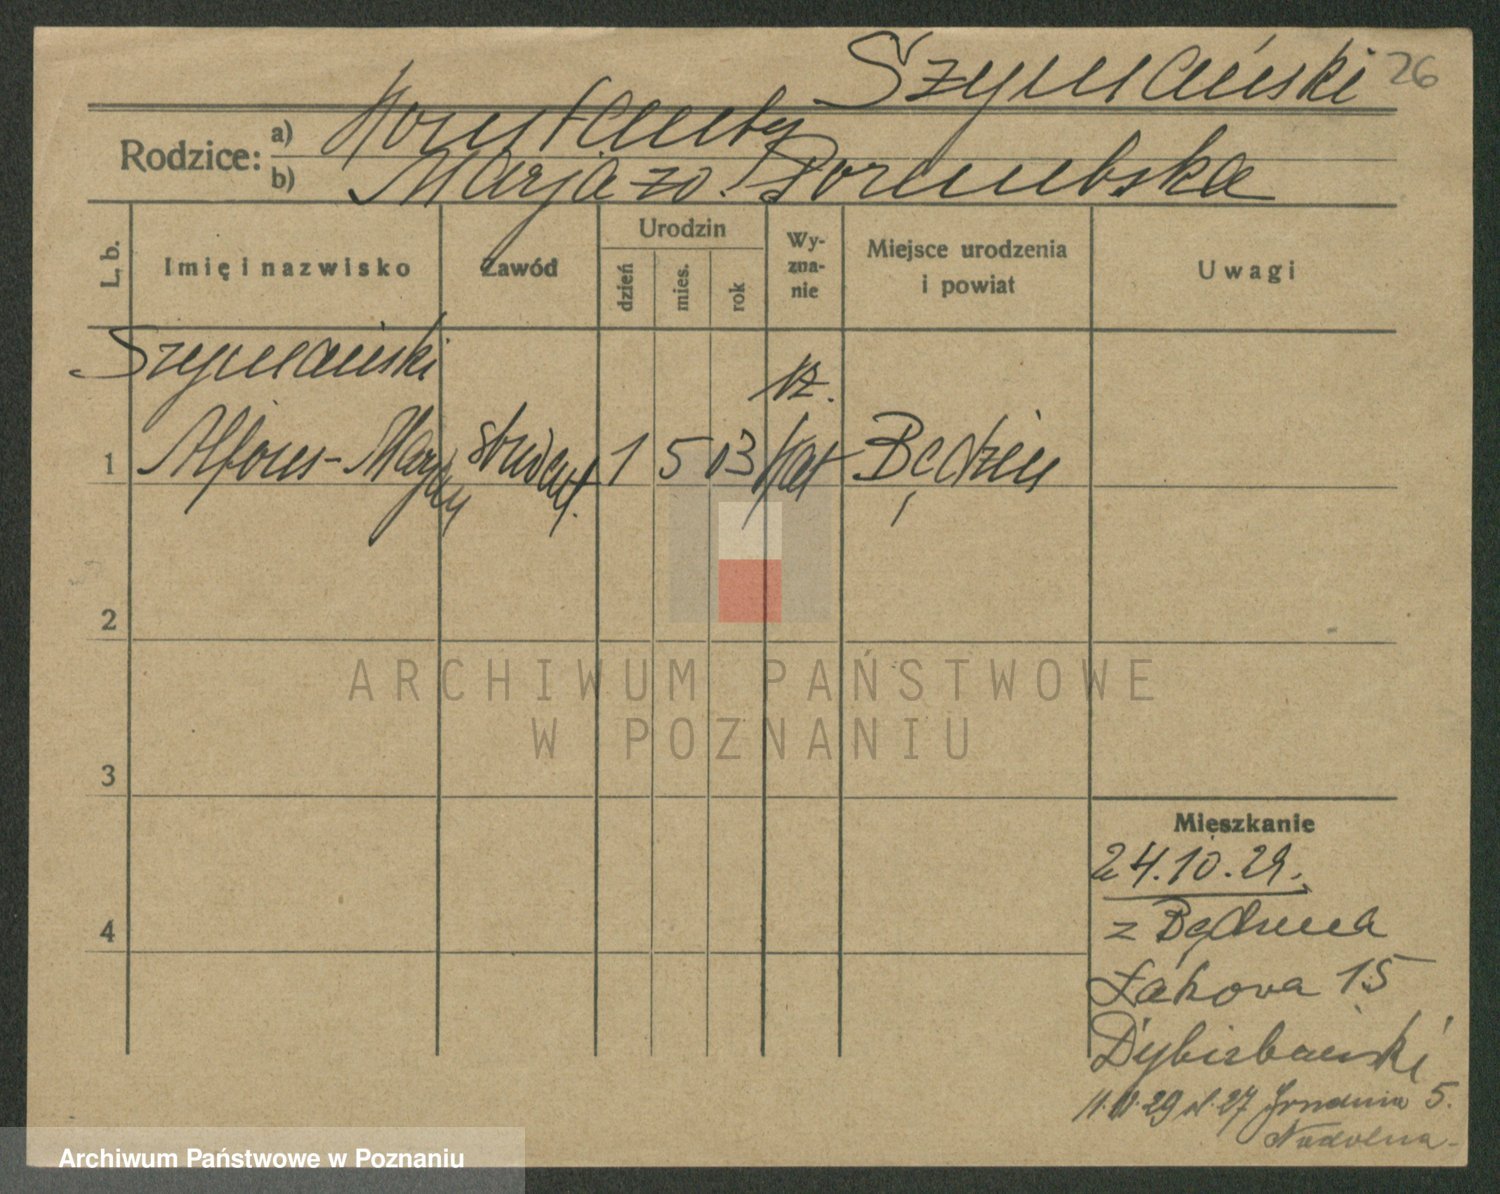 Szymański 26
Rodzice: a) Konstanty
b) Marja zd. Porembska
L. b. Imię i nazwisko Zawód Urodzin dzień mies. rok Wy-zna-nie Miejsce urodzenia i powiat Uwagi
Szymański rz.
1 Alfons-Marjan student. 1 5 03 kat Będzin
2
ARCHIWUM PAŃSTWOWE
W POZNANIU
3
Mieszkanie
24.10.29.
z Będzina
4
Łąkowa 15
Dybizbański
5.
Archiwum Państwowe w Poznaniu